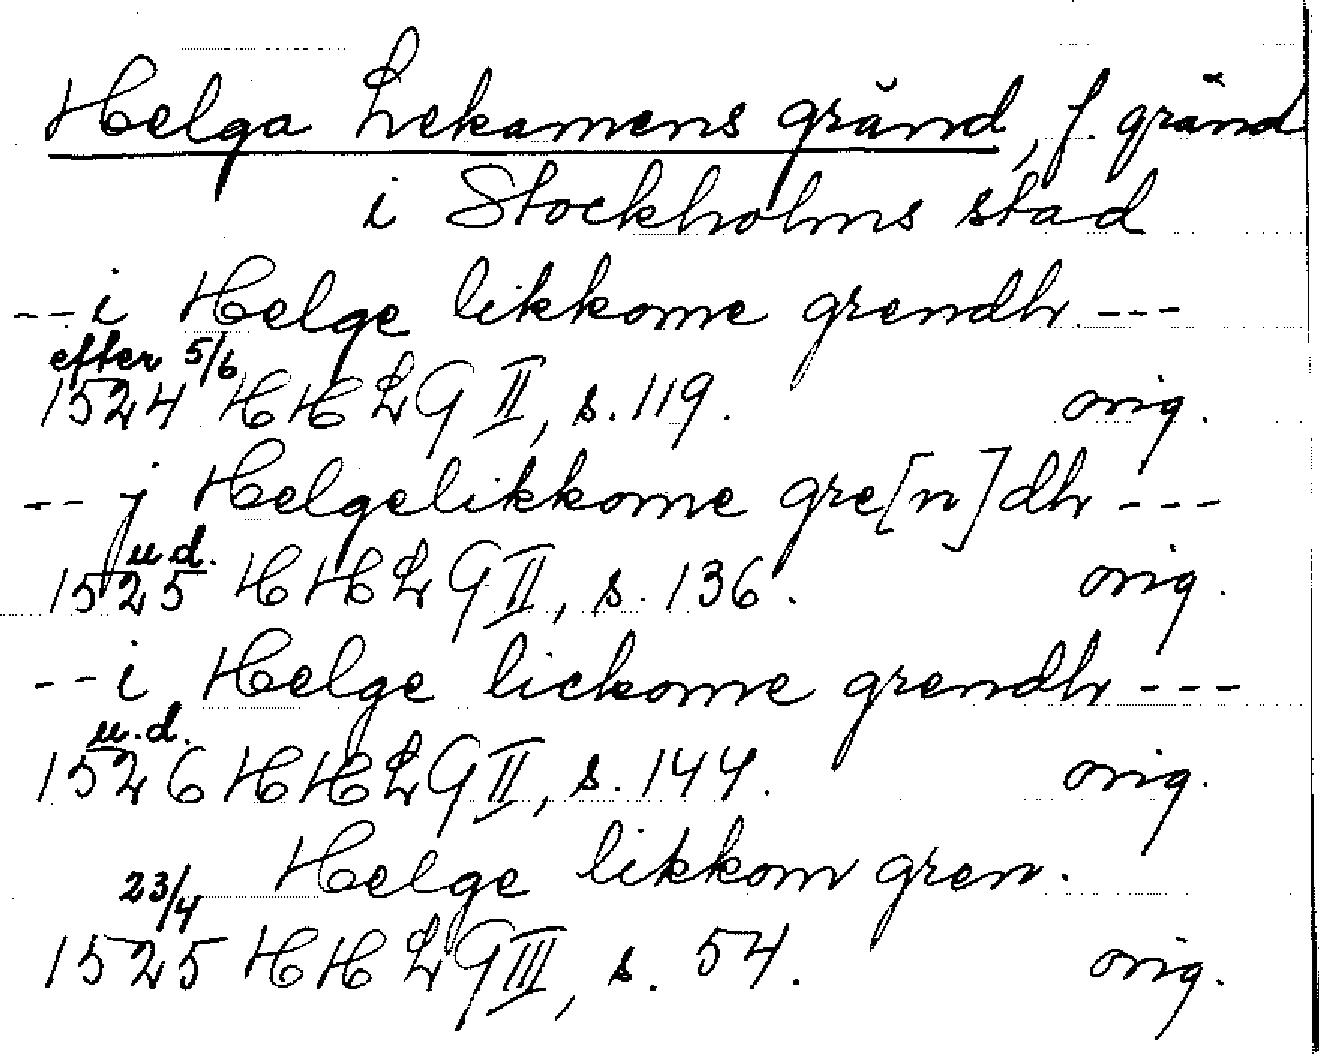 Helga Lekamens gränd, f. gränd
i Stockholms stad
--i Helge likkome grendh ---
efter 5/6
1524 HHLG II, s. 119. orig.
-- j Helgelikkome gre[n]dh ---
u.d.
1525 HHLG II, s. 136. orig.
--i Helge lickome grendh ---
u.d.
1526 HHLG II, s. 144. orig.
Helge likkom gren.
23/4
1525 HHLG III, s. 54. orig.